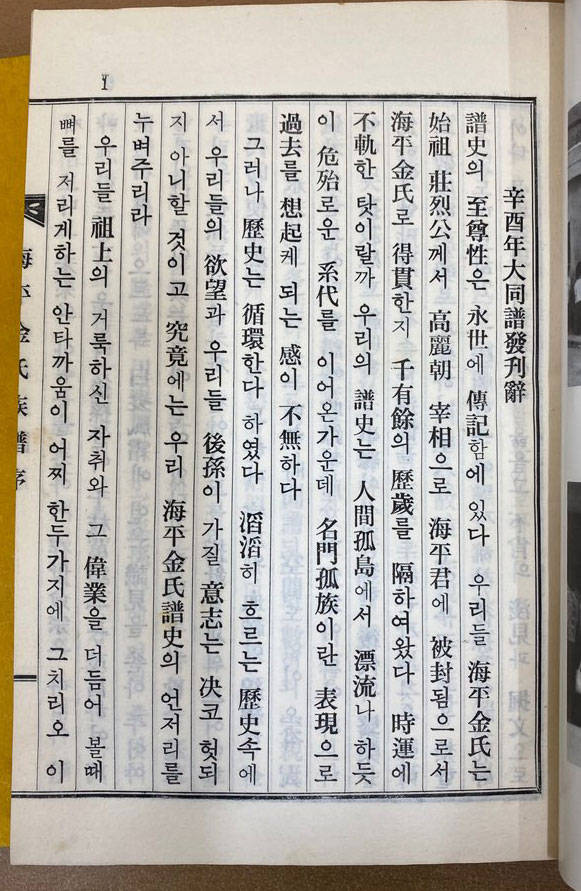 辛酉年大同譜發刊辭
譜史의 至尊性은 永世에 傳記함에 있다 우리들 海平金氏는
始祖 莊烈公께서 高麗朝 宰相으로 海平君에 被封됨으로서
海平金氏로 得貫한지 千有餘의 歷歲를 隔하여왔다 時運에
不軌한 탓이랄까 우리의 譜史는 人間孤島에서 漂流나 하듯
이 危殆로운 系代를 이어온가운데 名門孤族이란 表現으로
過去를 想起게 되는 感이 不無하다
그러나 歷史는 循環한다 하였다 滔滔히 흐르는 歷史속에
서 우리들의 欲望과 우리들 後孫이 가질 意志는 決코 헛되
지 아니할 것이고 究竟에는 우리 海平金氏譜史의 언저리를
누벼주리라
우리들 祖上의 거룩하신 자취와 그 偉業을 더듬어 볼때
뼈를 저리게하는 안타까움이 어찌 한두가지에 그치리오 이
海平金氏族譜序
1